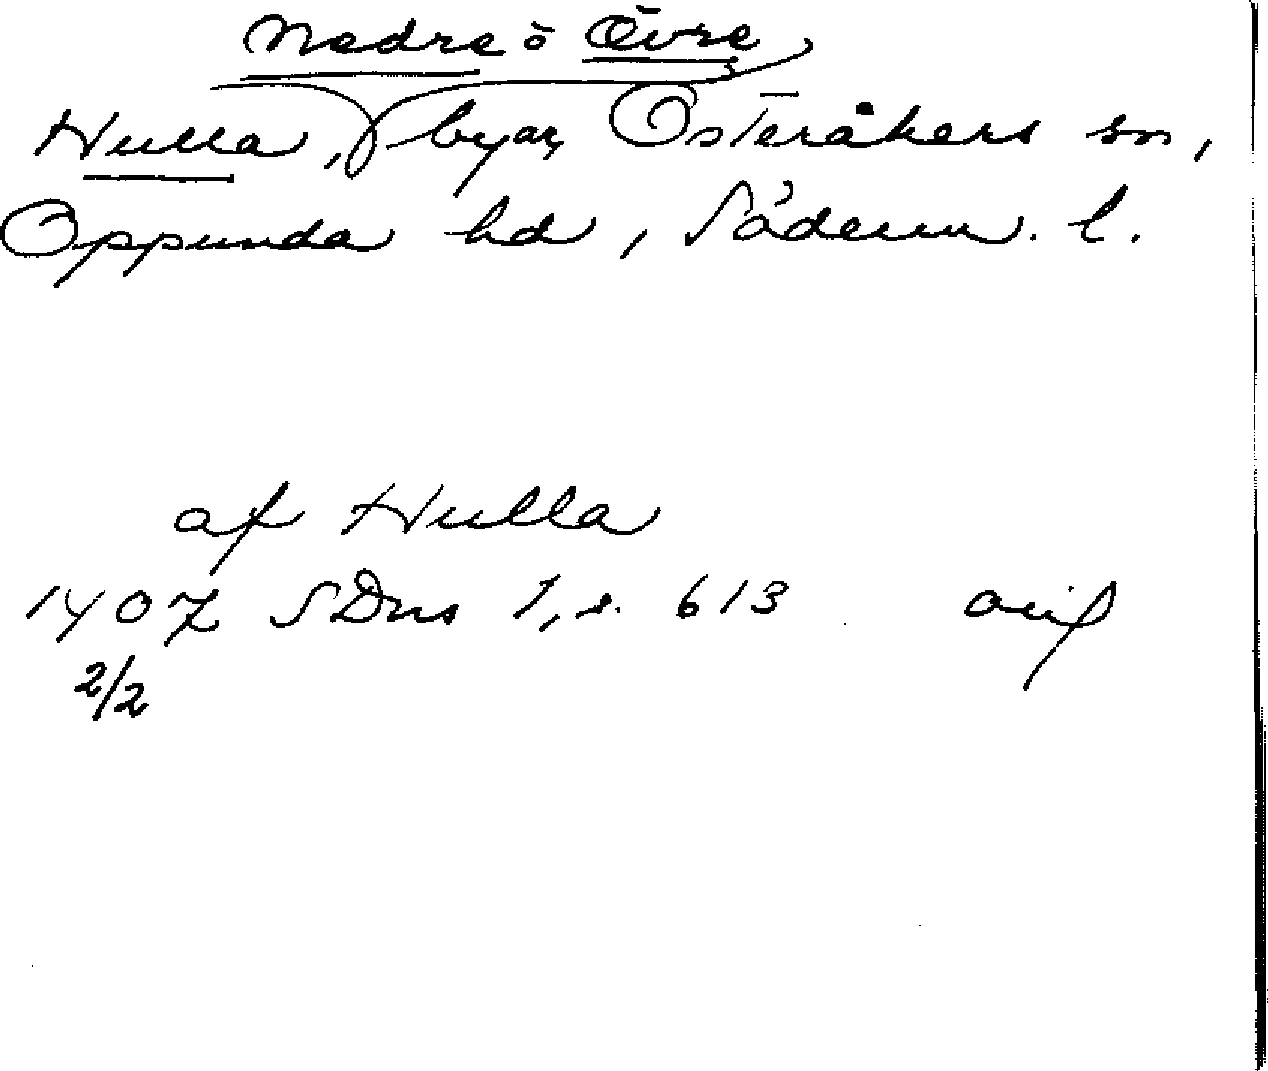 Nedre o Övre
Hulla, byar, Österåkers sn,
Oppunda hd, Söderm. l.
af Hulla
1407 SDns 1, s. 613 avs
2/2